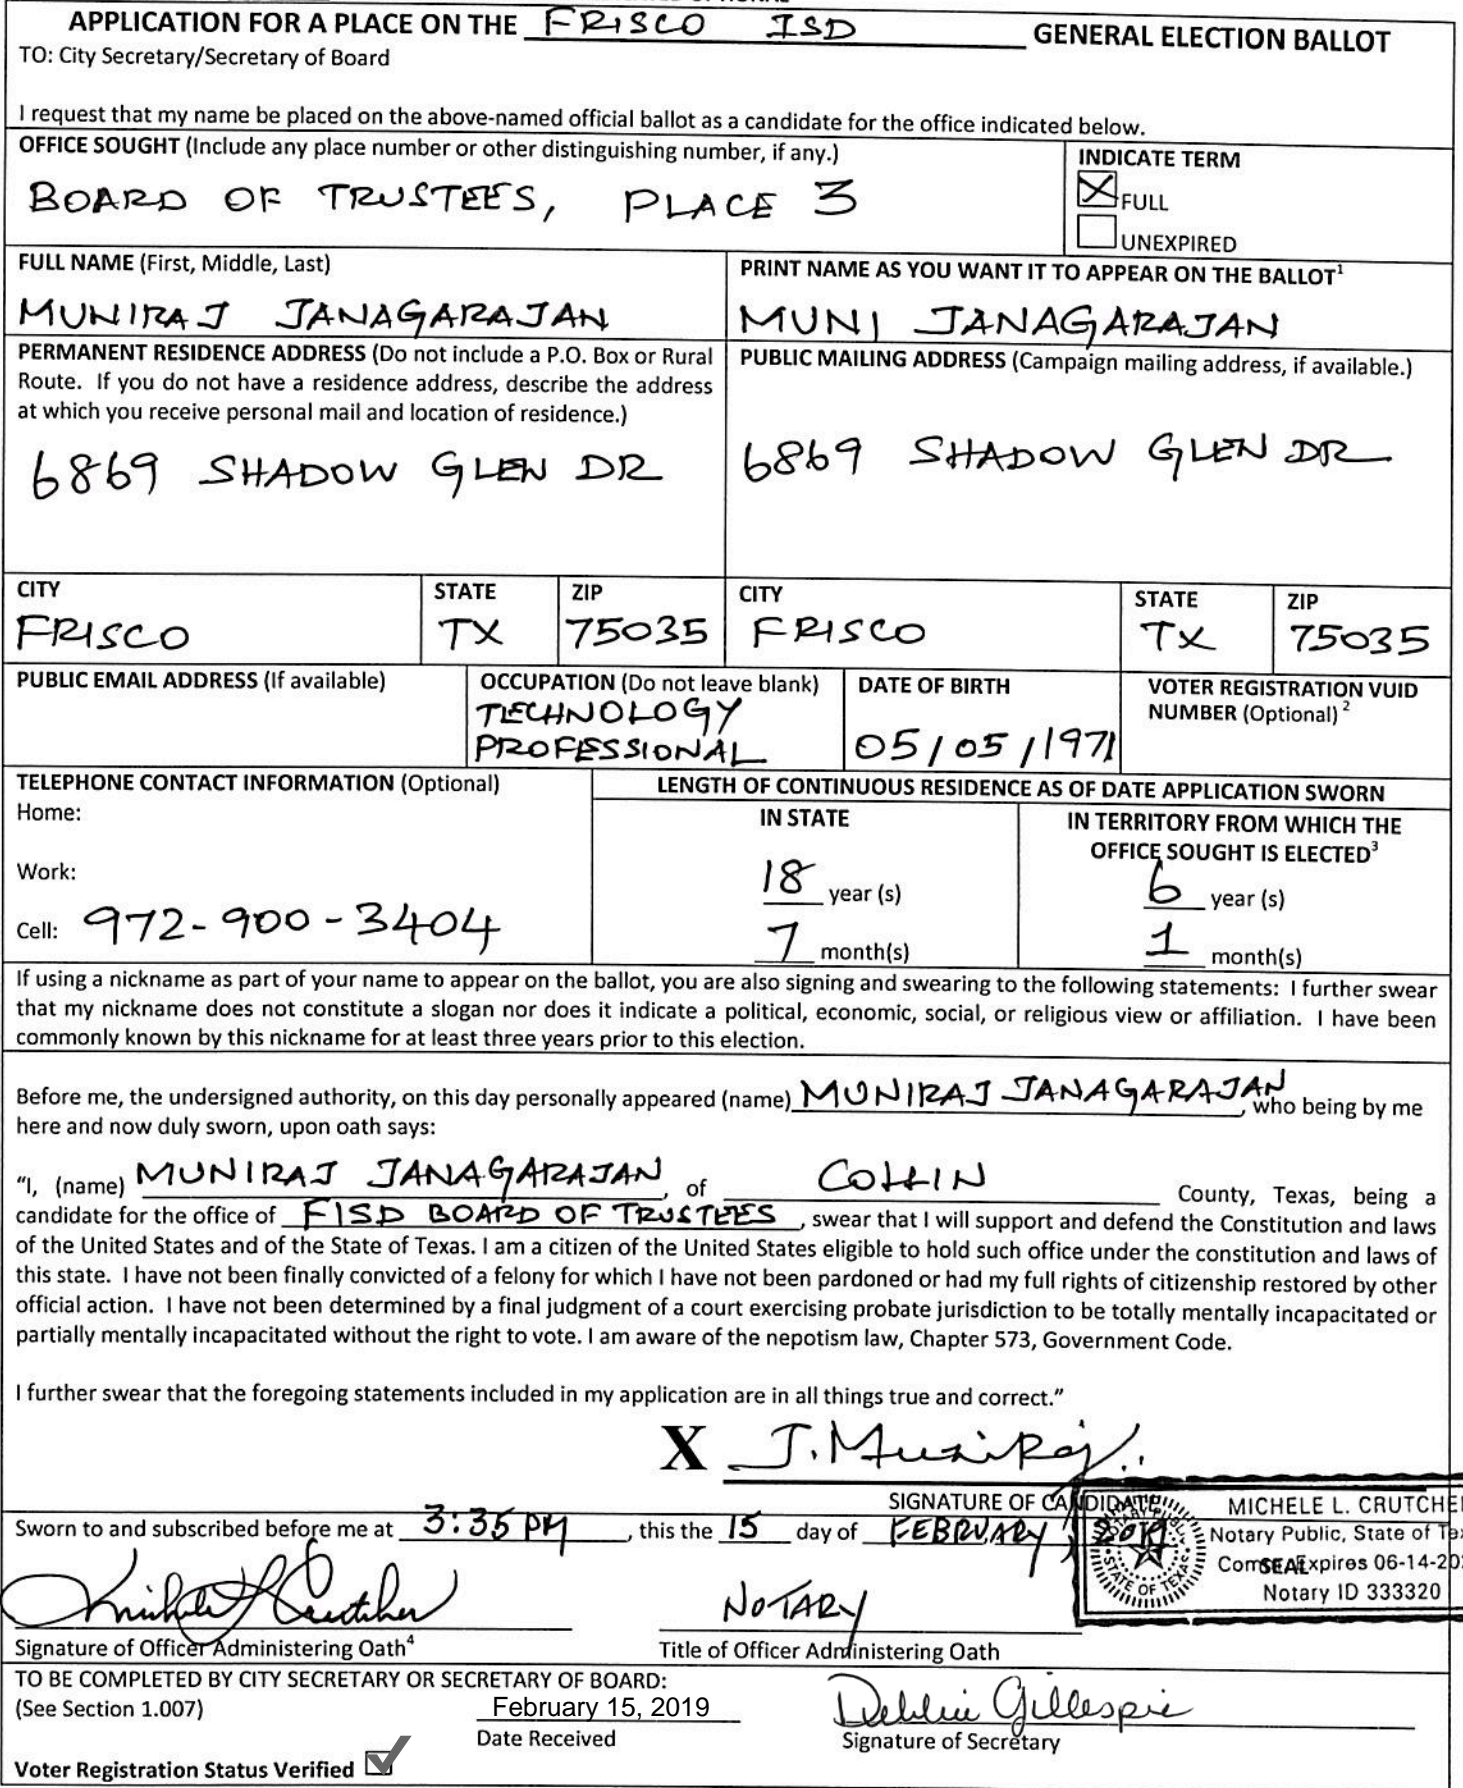 APPLICATION FOR A PLACE ON THE FRISCO ISD GENERAL ELECTION BALLOT
TO: City Secretary/Secretary of Board
I request that my name be placed on the above-named official ballot as a candidate for the office indicated below.
OFFICE SOUGHT (Include any place number or other distinguishing number, if any.)
BOARD OF TRUSTEES, PLACE 3
INDICATE TERM
FULL
UNEXPIRED
FULL NAME (First, Middle, Last)
MUNIRAJ JANAGARAJAN
PRINT NAME AS YOU WANT IT TO APPEAR ON THE BALLOT¹
MUNI JANAGARAJAN
PERMANENT RESIDENCE ADDRESS (Do not include a P.O. Box or Rural
Route. If you do not have a residence address, describe the address
at which you receive personal mail and location of residence.)
6869 SHADOW GLEN DR
PUBLIC MAILING ADDRESS (Campaign mailing address, if available.)
6869 SHADOW GLEN DR
CITY
FRISCO
STATE
TX
ZIP
75035
CITY
FRISCO
STATE
TX
ZIP
75035
PUBLIC EMAIL ADDRESS (If available)
OCCUPATION (Do not leave blank)
TECHNOLOGY
PROFESSIONAL
DATE OF BIRTH
05/05/1971
VOTER REGISTRATION VUID
NUMBER (Optional) ²
TELEPHONE CONTACT INFORMATION (Optional)
Home:
Work:
Cell: 972-900-3404
LENGTH OF CONTINUOUS RESIDENCE AS OF DATE APPLICATION SWORN
IN STATE
18 year (s)
7 month(s)
IN TERRITORY FROM WHICH THE
OFFICE SOUGHT IS ELECTED³
6 year (s)
1 month(s)
If using a nickname as part of your name to appear on the ballot, you are also signing and swearing to the following statements: I further swear
that my nickname does not constitute a slogan nor does it indicate a political, economic, social, or religious view or affiliation. I have been
commonly known by this nickname for at least three years prior to this election.
Before me, the undersigned authority, on this day personally appeared (name) MUNIRAJ JANAGARAJAN, who being by me
here and now duly sworn, upon oath says:
"I, (name) MUNIRAJ JANAGARAJAN, of COLLIN County, Texas, being a
candidate for the office of FISD BOARD OF TRUSTEES, swear that I will support and defend the Constitution and laws
of the United States and of the State of Texas. I am a citizen of the United States eligible to hold such office under the constitution and laws of
this state. I have not been finally convicted of a felony for which I have not been pardoned or had my full rights of citizenship restored by other
official action. I have not been determined by a final judgment of a court exercising probate jurisdiction to be totally mentally incapacitated or
partially mentally incapacitated without the right to vote. I am aware of the nepotism law, Chapter 573, Government Code.
I further swear that the foregoing statements included in my application are in all things true and correct."
X J. Muniraj.
SIGNATURE OF CANDIDATE
Sworn to and subscribed before me at 3:35 PM, this the 15 day of FEBRUARY, 2019
NOTARY PUBLIC
STATE OF TEXAS
MICHELE L. CRUTCHE
Notary Public, State of Tex
Comm Expires 06-14-20
SEAL
Notary ID 333320
Michele L Crutcher
Signature of Officer Administering Oath⁴
NOTARY
Title of Officer Administering Oath
TO BE COMPLETED BY CITY SECRETARY OR SECRETARY OF BOARD:
(See Section 1.007)
February 15, 2019
Date Received
Debbie Gillespie
Signature of Secretary
Voter Registration Status Verified